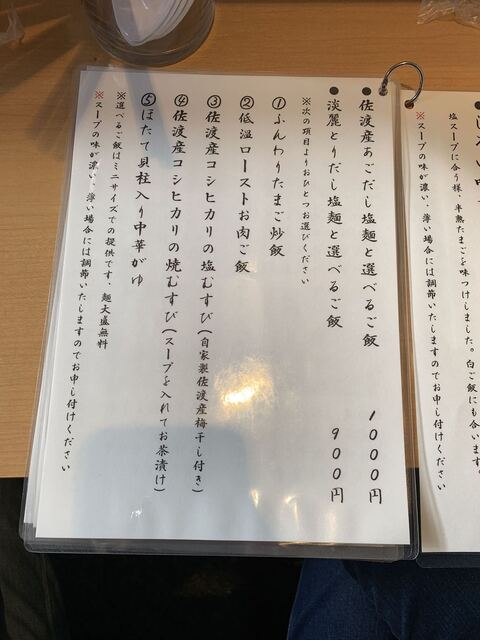 塩スープに合う様、半熟たまごを味つけしました。白ご飯にも合います。
※スープの味が濃い、薄い場合には調節いたしますのでお申し付けください
●佐渡産あごだし塩麺と選べるご飯 1000円
●淡麗とりだし塩麺と選べるご飯 900円
※次の項目よりおひとつお選びください
①ふんわりたまご炒飯
②低温ローストお肉ご飯
③佐渡産コシヒカリの塩むすび(自家製佐渡産梅干し付き)
④佐渡産コシヒカリの焼むすび(スープを入れてお茶漬け)
⑤ほたて貝柱入り中華がゆ
※選べるご飯はミニサイズでの提供です、麺大盛無料
※スープの味が濃い、薄い場合には調節いたしますのでお申し付けください